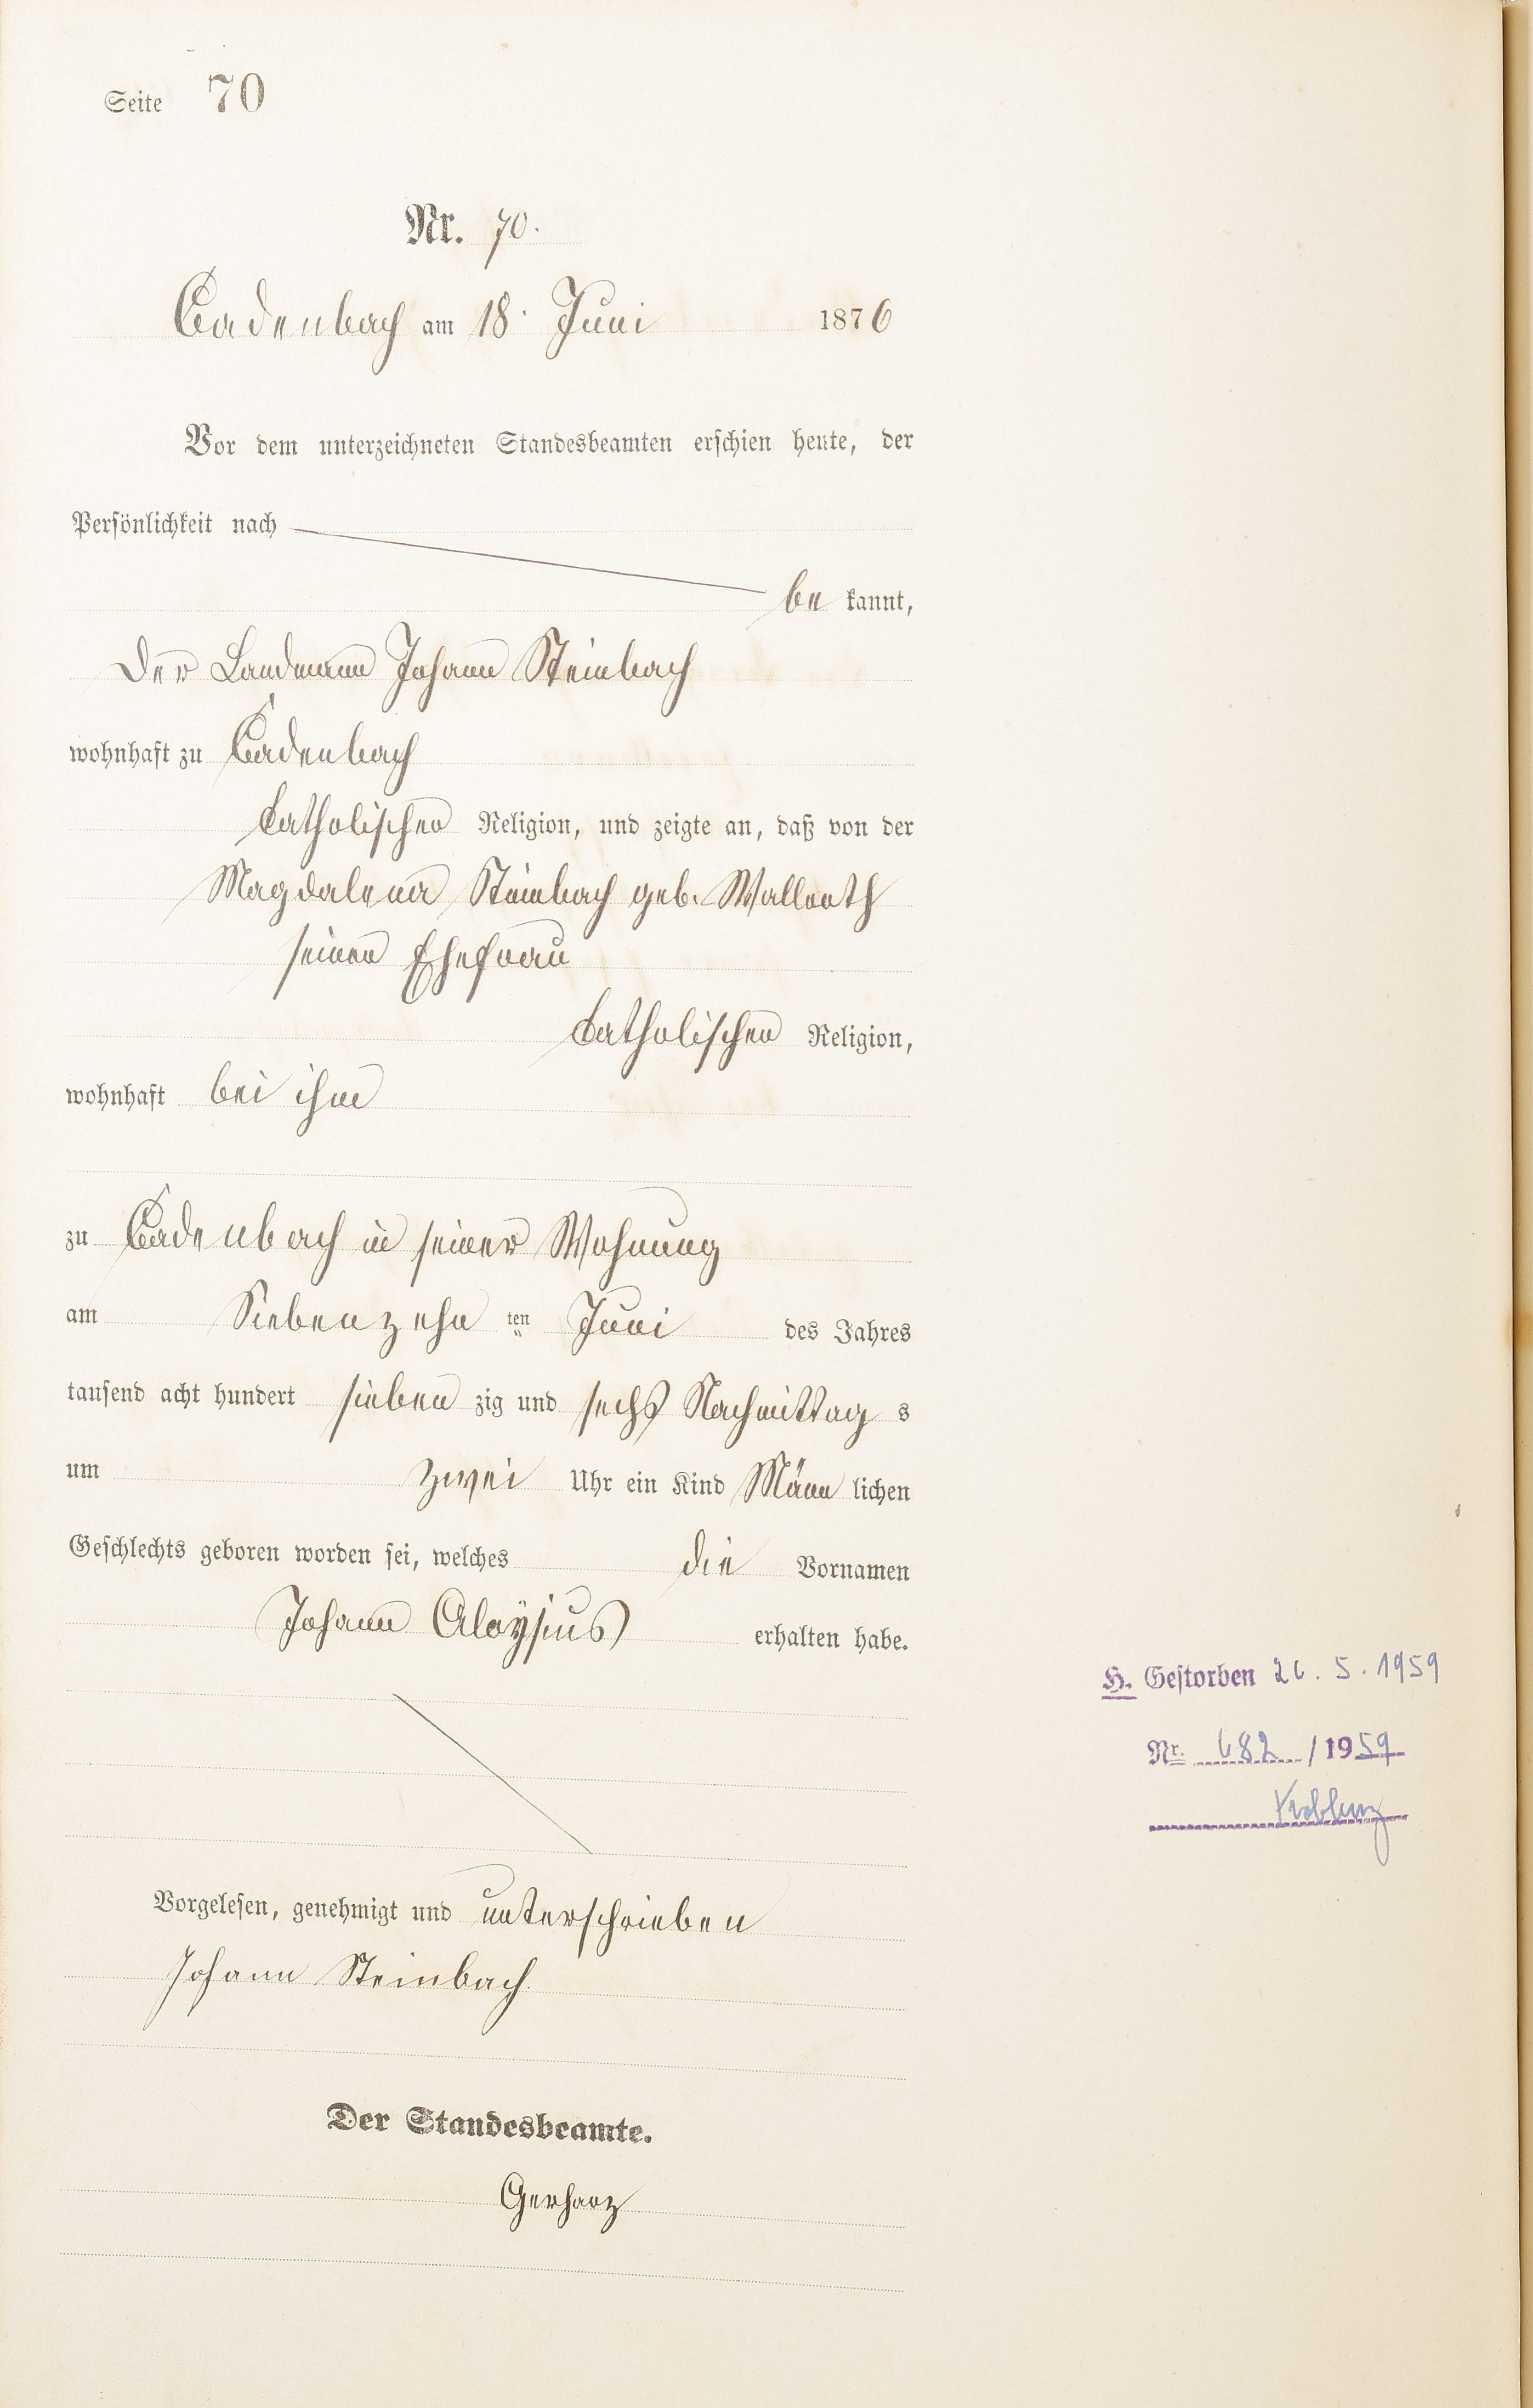 Seite 70
Nr. 70.
Cadenbach am 18. Juni 1876
Vor dem unterzeichneten Standesbeamten erschien heute, der
Persönlichkeit nach
be kannt,
der Landmann Johann Steinbach
wohnhaft zu Cadenbach
catholischer Religion, und zeigte an, daß von der
Magdalena Steinbach geb. Wallroth
seiner Ehefrau
catholischer Religion,
wohnhaft bei ihm
zu Cadenbach in seiner Wohnung
am Siebenzehn ten Juni des Jahres
tausend acht hundert sieben zig und sechs Nachmittag s
um zwei Uhr ein Kind Männ lichen
Geschlechts geboren worden sei, welches die Vornamen
Johann Aloysius erhalten habe.
H. Gestorben 26. 5. 1959
Nr. 682 / 1959
Koblenz
Vorgelesen, genehmigt und unterschrieben
Johann Steinbach
Der Standesbeamte.
Gerharz